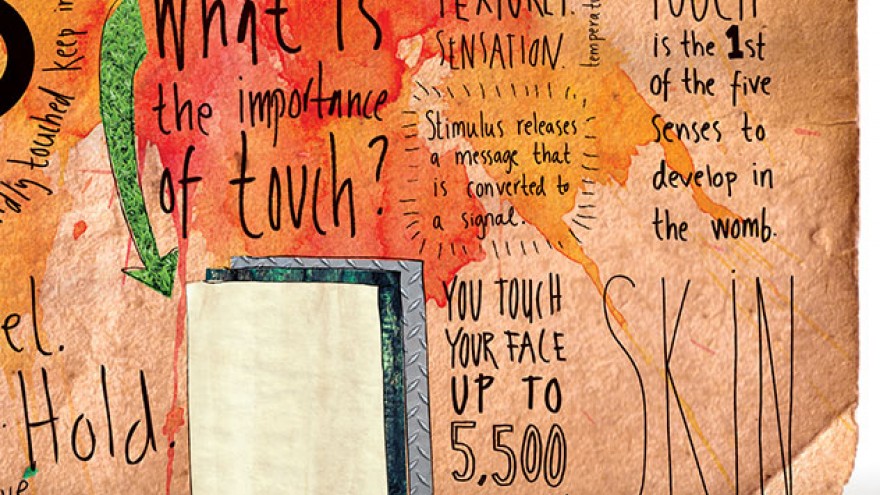 touched keep in
What is
the importance
of touch?
SENSATION.
Stimulus releases
a message that
is converted to
a signal.
TOUCH
is the 1st
of the five
senses to
develop in
the womb.
YOU TOUCH
YOUR FACE
UP TO
5,500
SKIN
el.
Hold.